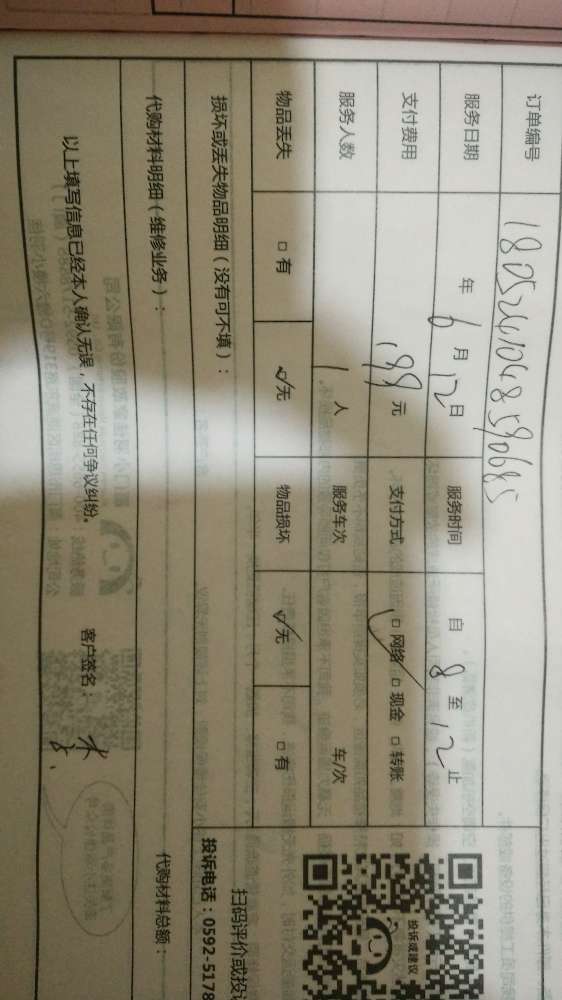 订单编号 1805261048590685
服务日期 年 6 月 12 日 服务时间 自 8 至 12 止
支付费用 199 元 支付方式 □ 网络 □ 现金 □ 转账
服务人数 1 人 服务车次 车/次
物品丢失 □ 有 ☑ 无 物品损坏 ☑ 无 □ 有
损坏或丢失物品明细（没有可不填）：
代购材料明细（维修业务）： 代购材料总额：
以上填写信息已经本人确认无误，不存在任何争议纠纷。 客户签名：
投诉或建议
扫码评价或投
投诉电话：0592-5178